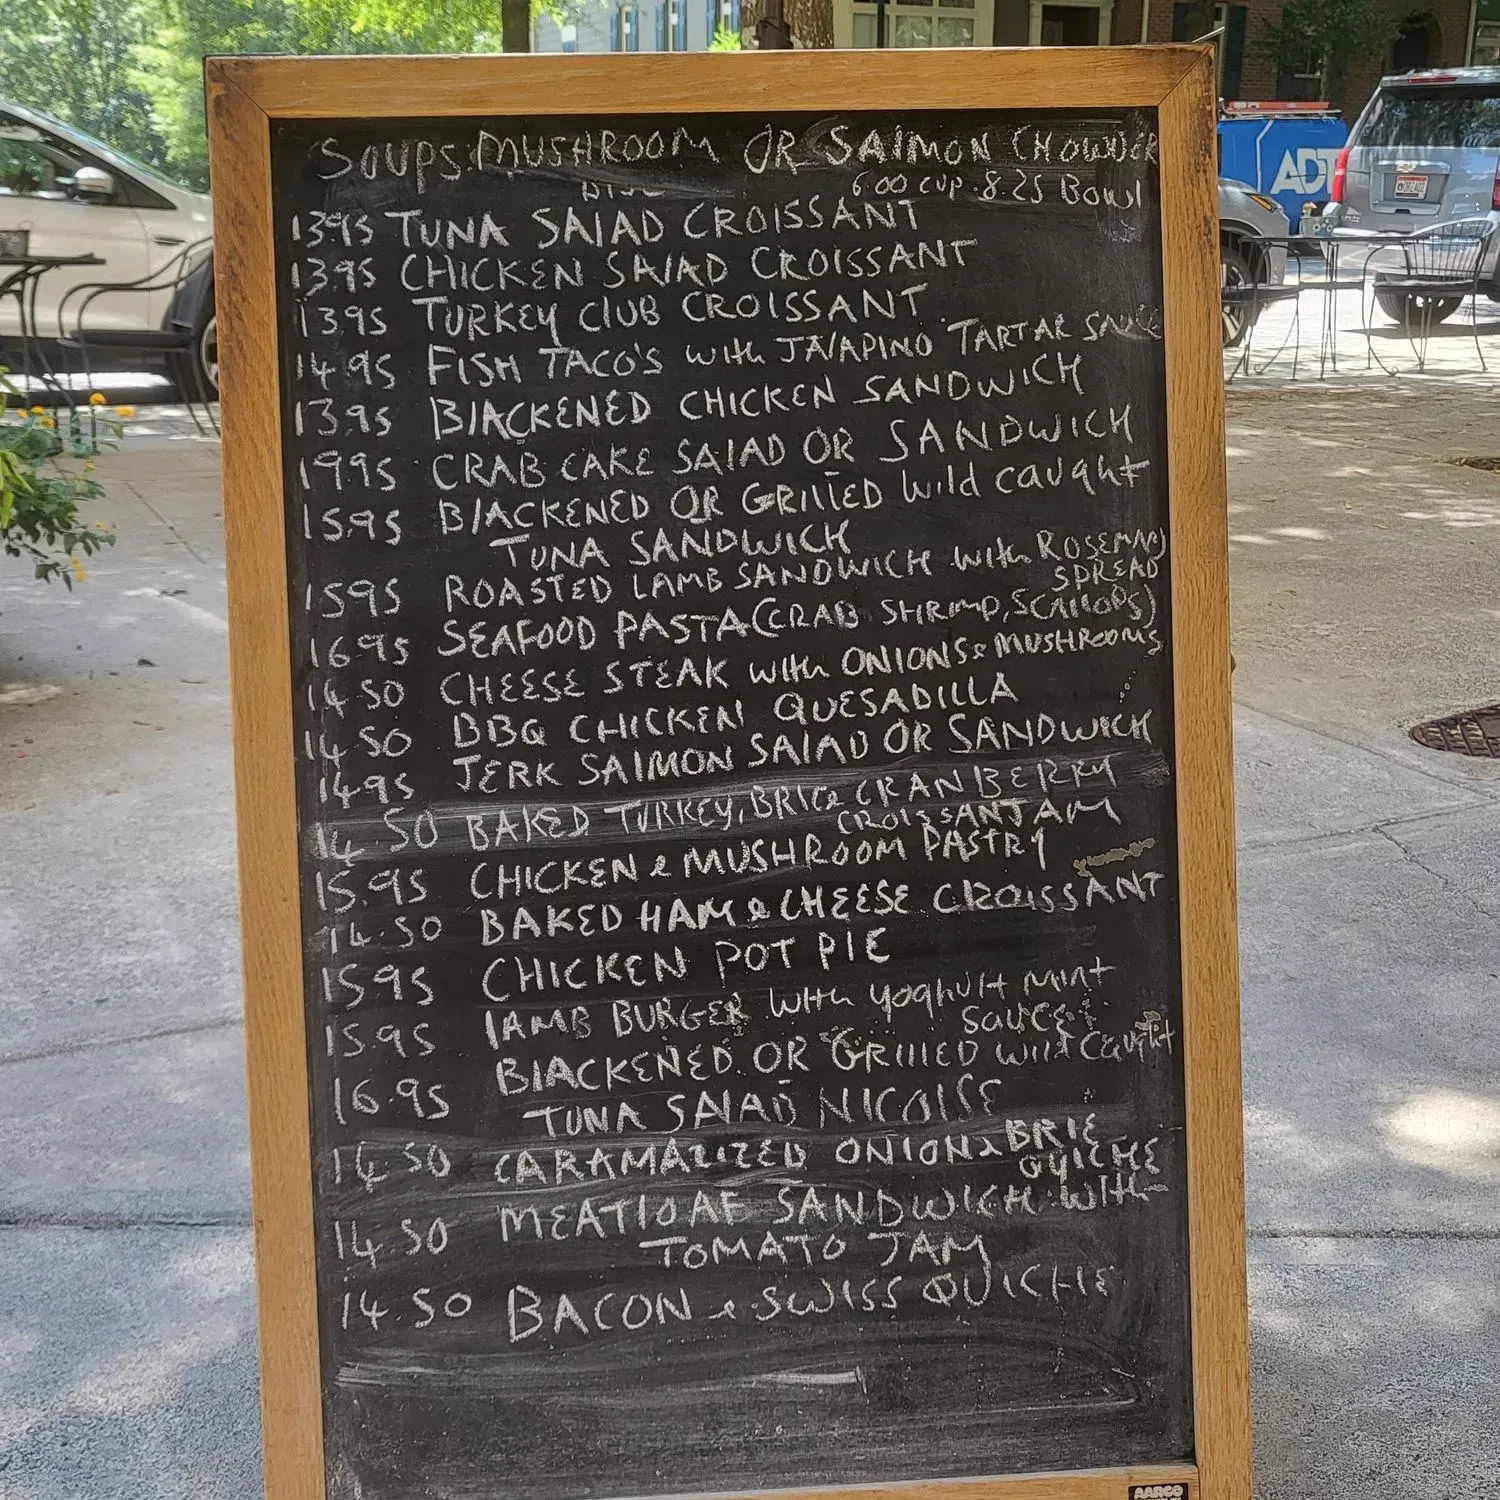 SOUPS: MUSHROOM OR SALMON CHOWDER
6.00 CUP. 8.25 BOWL
13.95 TUNA SALAD CROISSANT
13.95 CHICKEN SALAD CROISSANT
13.95 TURKEY CLUB CROISSANT
14.95 FISH TACO'S with JALAPINO TARTAR SAUCE
13.95 BLACKENED CHICKEN SANDWICH
19.95 CRAB CAKE SALAD OR SANDWICH
15.95 BLACKENED OR GRILLED wild caught
TUNA SANDWICH
15.95 ROASTED LAMB SANDWICH with ROSEMARY
SPREAD
16.95 SEAFOOD PASTA (CRAB SHRIMP, SCALLOPS)
14.50 CHEESE STEAK with ONIONS & MUSHROOMS
14.50 BBQ CHICKEN QUESADILLA
14.95 JERK SALMON SALAD OR SANDWICH
14.50 BAKED TURKEY, BRIE & CRANBERRY
CROISSANT JAM
15.95 CHICKEN & MUSHROOM PASTRY
14.50 BAKED HAM & CHEESE CROISSANT
15.95 CHICKEN POT PIE
15.95 LAMB BURGER with yoghult mint
SAUCE
16.95 BLACKENED OR GRILLED wild caught
TUNA SALAD NICOISE
14.50 CARAMALIZED ONION & BRIE
QUICHE
14.50 MEATLOAF SANDWICH with
TOMATO JAM
14.50 BACON & SWISS QUICHE
ADT
AARCO